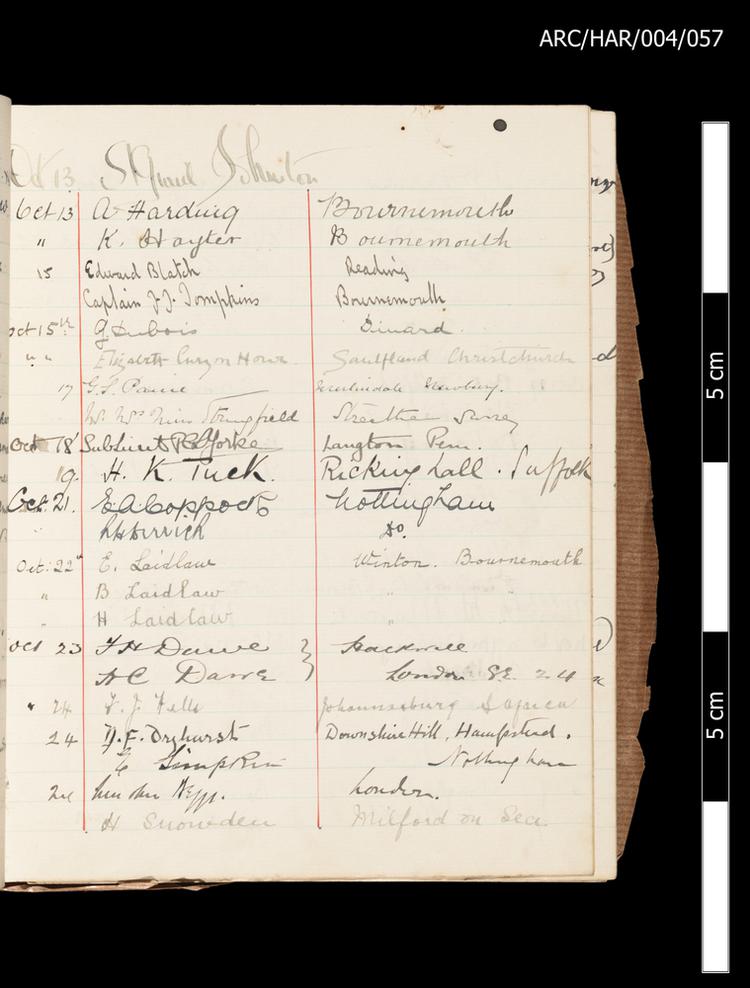 ARC/HAR/004/057
Oct 13 Johnston
Oct 13 A Harding Bournemouth
" K. Hayter Bournemouth
15 Edward Blatch Reading
Captain J.J. Tompkins Bournemouth
Oct 15th G Dubois Dinard.
" " Elizabeth Curzon Howe. Saulfland Christchurch
17 G.S. Newbury.
Stringfield Surrey
Oct 18 Sub Lieut Yorke Langton
19. H. K. Tuck. Rickinghall. Suffolk
Oct. 21. E A Coppock Nottingham
Do.
Oct. 22nd E. Laidlaw Winton. Bournemouth
" B Laidlaw "
" H Laidlaw "
Oct 23 F H Dawe
H C Dawe } London S.E. 24
" 24 Johannesburg S Africa
24 Dryhurst Downshire Hill, Hampstead.
E Simpkin Nottingham
24 London.
H Snowden Milford on Sea.
5 cm
5 cm